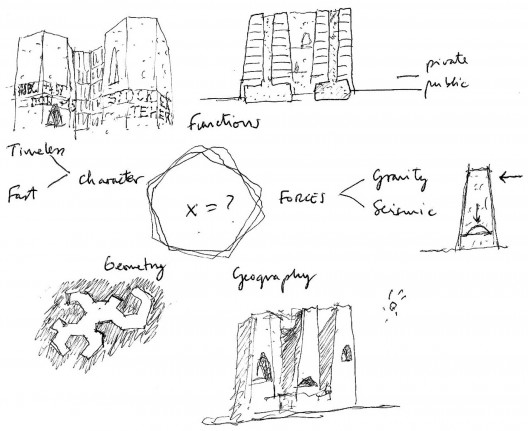 private
public
Functions
Timeless
Fast
Character
x = ?
FORCES
Gravity
Seismic
Geometry
Geography